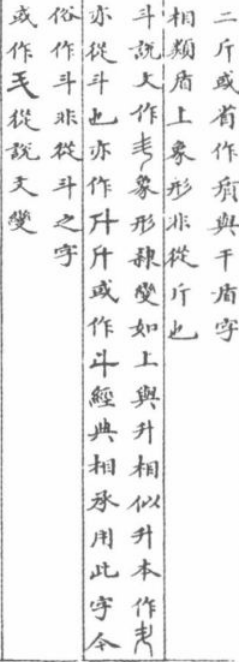 二斤或省作與干盾字
相類盾上象形非從斤也
斗說文作象形隸變如上與升相似升本作
亦從斗也亦作或作斗經典相承用此字今
俗作斗非從斗之字
或作從說文變